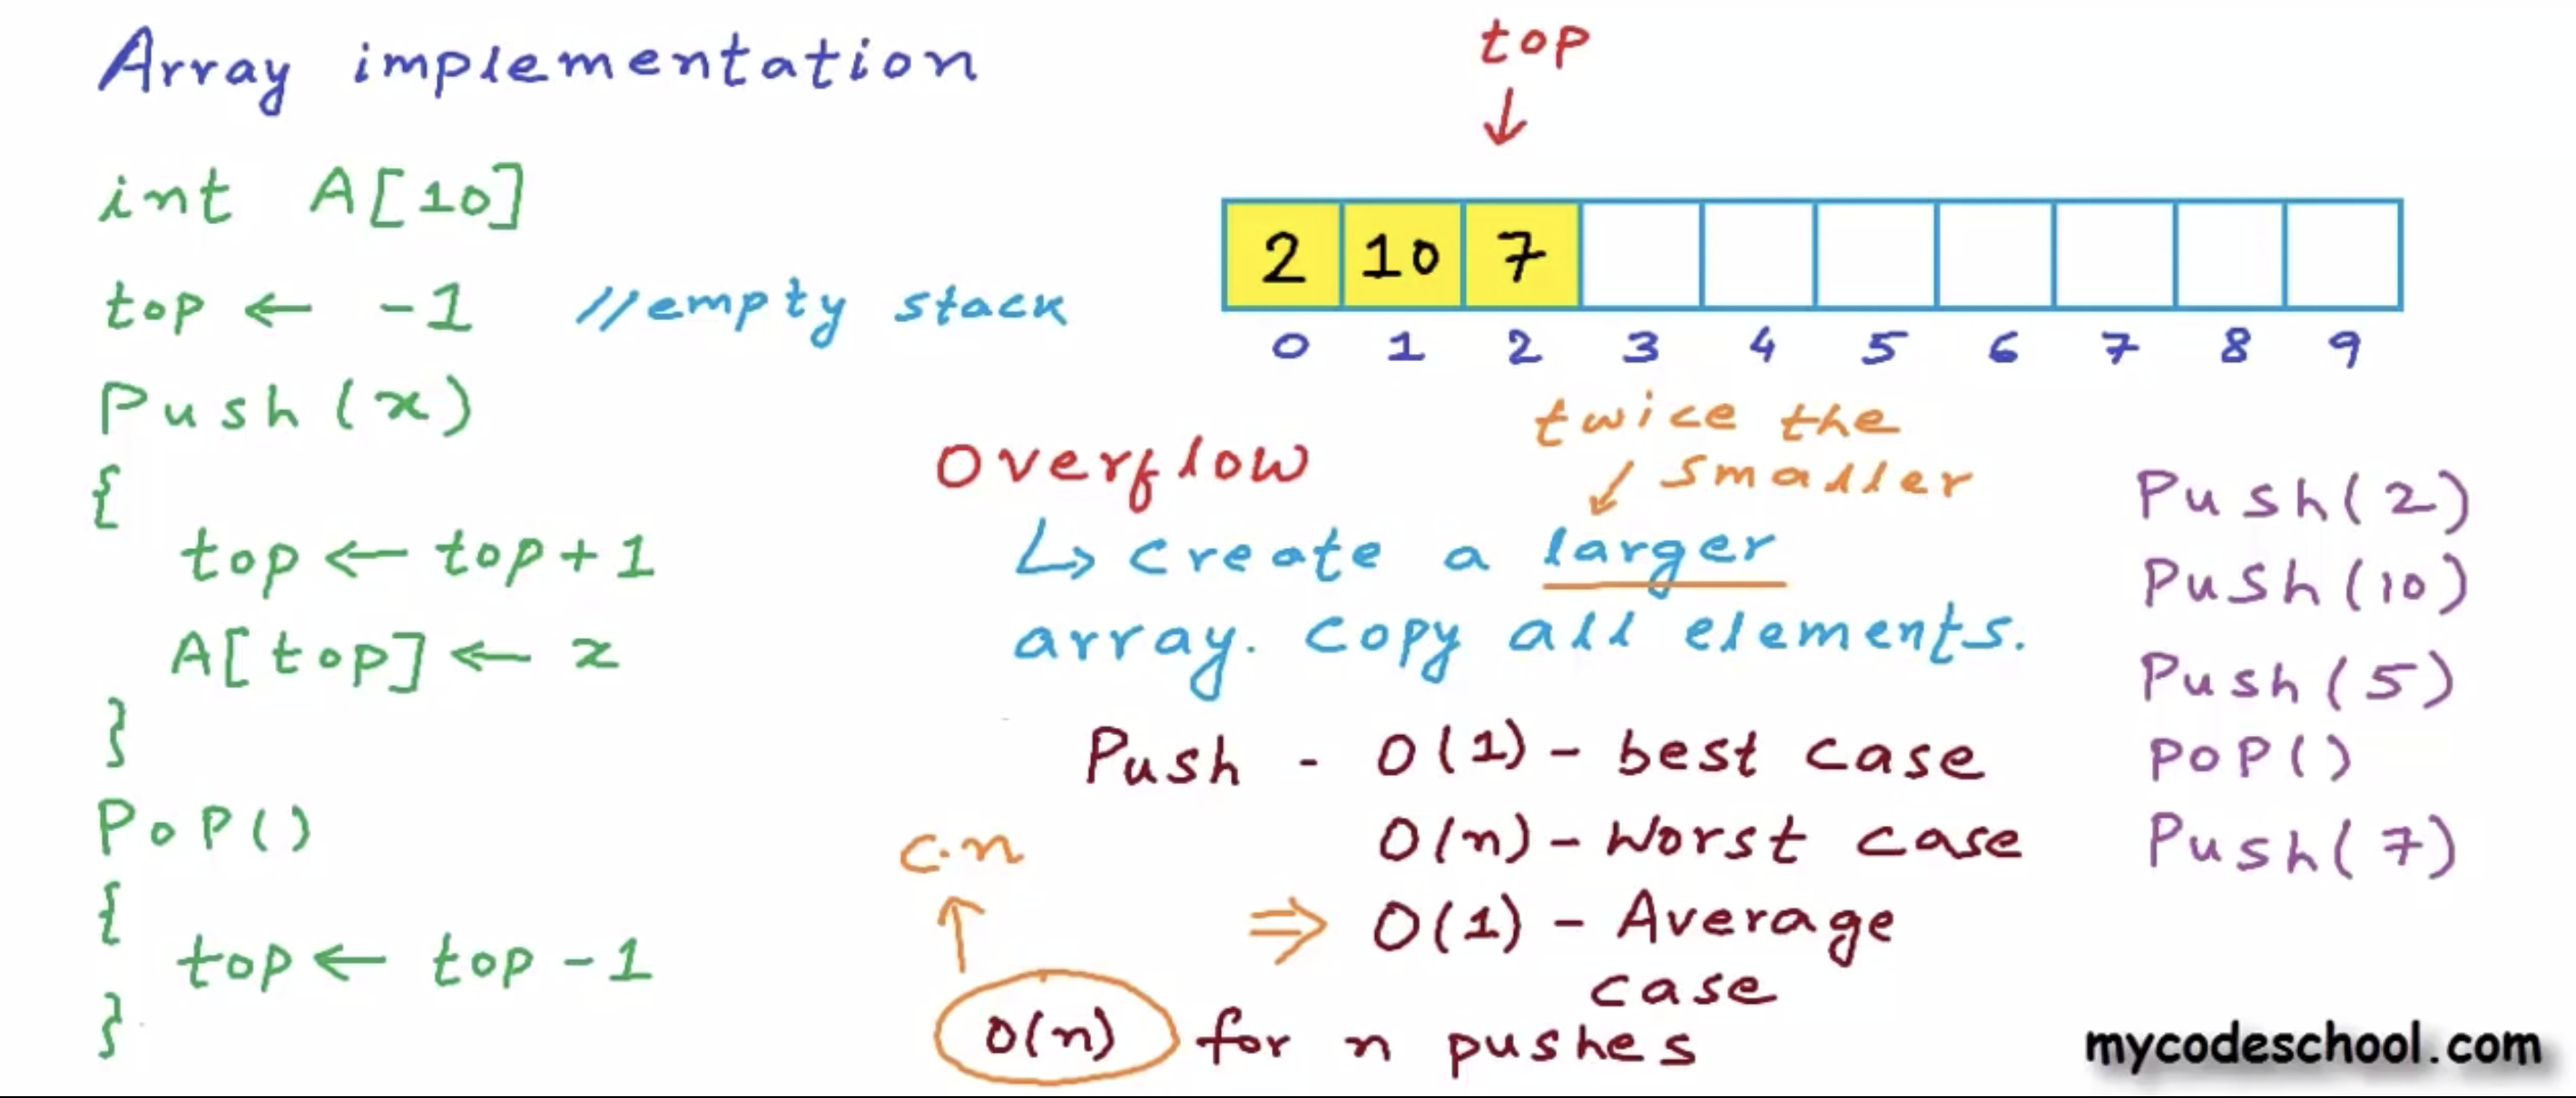 Array implementation
int A[10]
top ← -1 //empty stack
Push(x)
{
top ← top+1
A[top] ← x
}
POP()
{
top ← top-1
}
top
↓
2 10 7
0 1 2 3 4 5 6 7 8 9
Overflow
twice the
↙ smaller
↳ create a larger
array. copy all elements.
Push - O(1) - best case
O(n) - Worst case
⇒ O(1) - Average
case
c.n
↑
O(n) for n pushes
Push(2)
Push(10)
Push(5)
POP()
Push(7)
mycodeschool.com